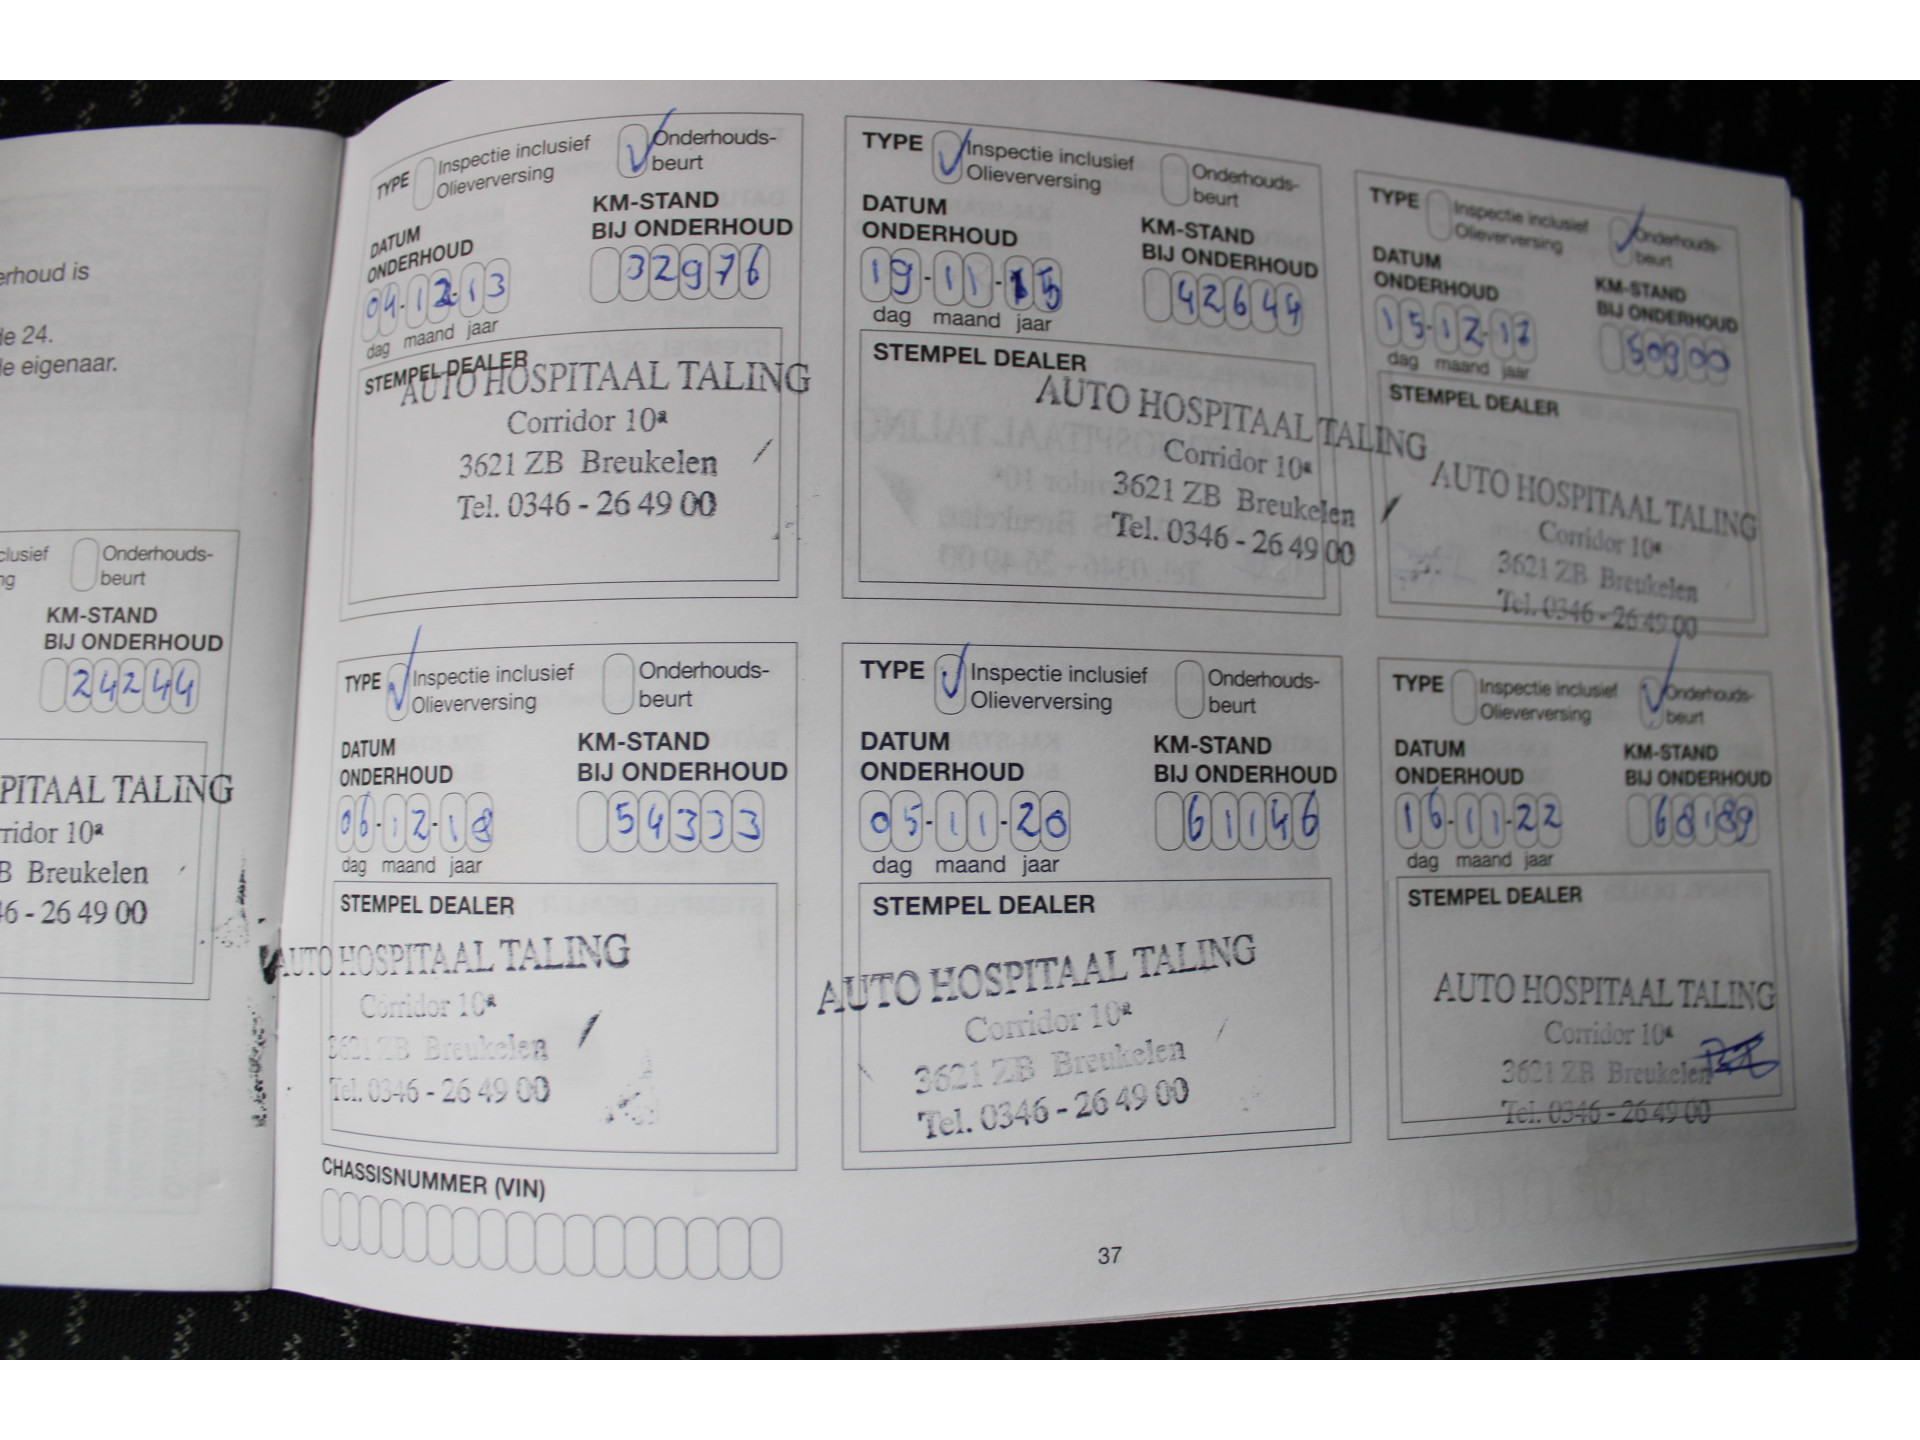 erhoud is
de 24.
le eigenaar.
clusief
ng
Onderhouds-
beurt
KM-STAND
BIJ ONDERHOUD
24244
PITAAL TALING
rridor 10ª
B Breukelen
46 - 26 49 00
TYPE Inspectie inclusief
Olieverversing
Onderhouds-
beurt
DATUM
ONDERHOUD
KM-STAND
BIJ ONDERHOUD
04-12-13
32976
dag maand jaar
STEMPEL DEALER
AUTO HOSPITAAL TALING
Corridor 10ª
3621 ZB Breukelen
Tel. 0346 - 26 49 00
TYPE Inspectie inclusief
Olieverversing
Onderhouds-
beurt
DATUM
ONDERHOUD
KM-STAND
BIJ ONDERHOUD
19-11-15
42644
dag maand jaar
STEMPEL DEALER
AUTO HOSPITAAL TALING
Corridor 10ª
3621 ZB Breukelen
Tel. 0346 - 26 49 00
TYPE Inspectie inclusief
Olieverversing
Onderhouds-
beurt
DATUM
ONDERHOUD
KM-STAND
BIJ ONDERHOUD
15-12-17
50900
dag maand jaar
STEMPEL DEALER
AUTO HOSPITAAL TALING
Corridor 10ª
3621 ZB Breukelen
Tel. 0346 - 26 49 00
TYPE Inspectie inclusief
Olieverversing
Onderhouds-
beurt
DATUM
ONDERHOUD
KM-STAND
BIJ ONDERHOUD
06-12-18
54333
dag maand jaar
STEMPEL DEALER
AUTO HOSPITAAL TALING
Corridor 10ª
3621 ZB Breukelen
Tel. 0346 - 26 49 00
TYPE Inspectie inclusief
Olieverversing
Onderhouds-
beurt
DATUM
ONDERHOUD
KM-STAND
BIJ ONDERHOUD
05-11-20
61146
dag maand jaar
STEMPEL DEALER
AUTO HOSPITAAL TALING
Corridor 10ª
3621 ZB Breukelen
Tel. 0346 - 26 49 00
TYPE Inspectie inclusief
Olieverversing
Onderhouds-
beurt
DATUM
ONDERHOUD
KM-STAND
BIJ ONDERHOUD
16-11-22
68189
dag maand jaar
STEMPEL DEALER
AUTO HOSPITAAL TALING
Corridor 10ª
3621 ZB Breukelen
Tel. 0346 - 26 49 00
CHASSISNUMMER (VIN)
37